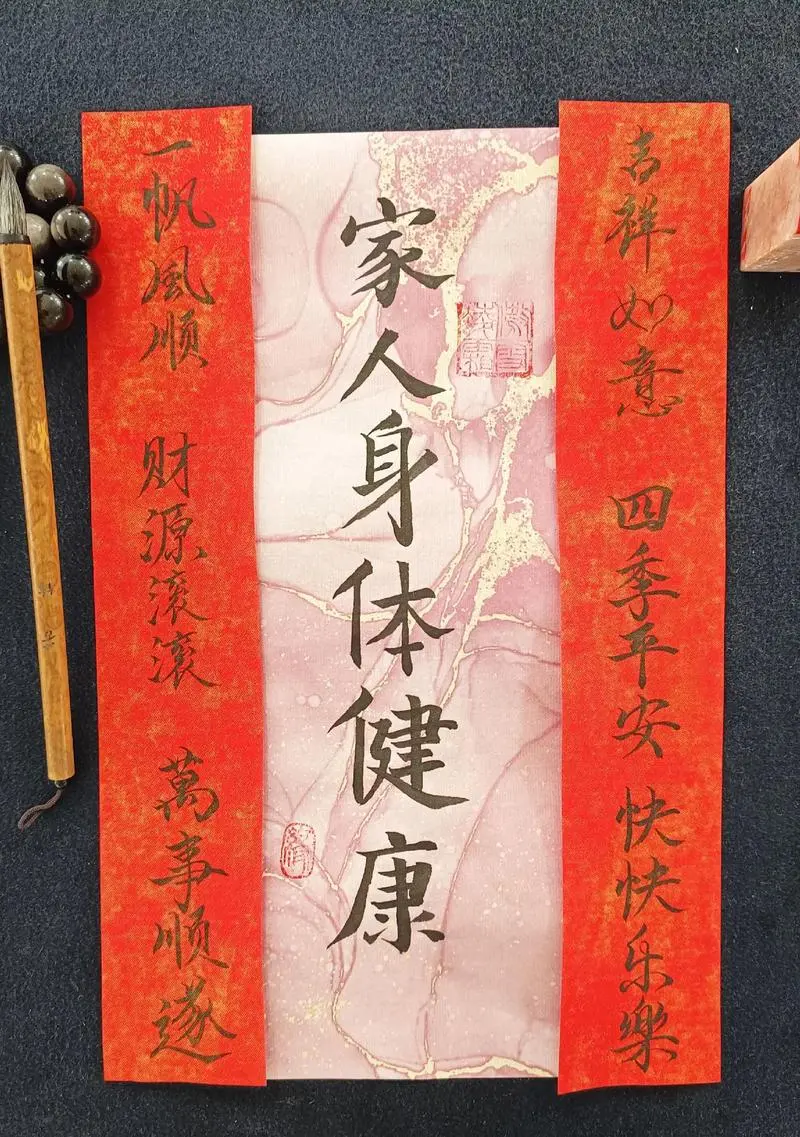 吉祥如意 四季平安 快快乐樂
家人身体健康
一帆風顺 财源滚滚 萬事顺遂